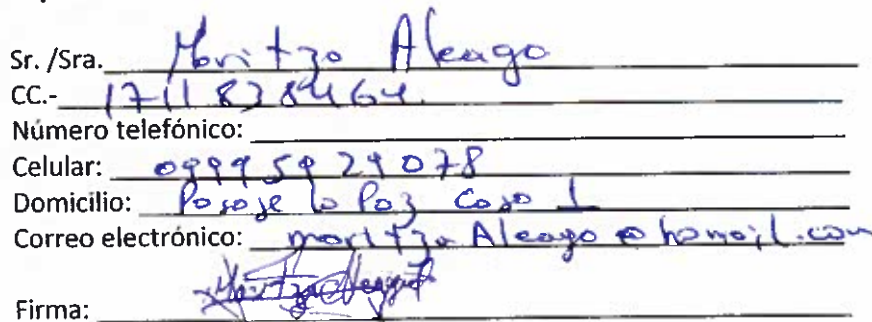 Sr. /Sra. Maritza Aleago
CC.- 1711828464.
Número telefónico:
Celular: 09995929078
Domicilio: Pasaje la Paz Casa 1
Correo electrónico: maritza Aleago @ homail.com
Firma: Maritza Aleago